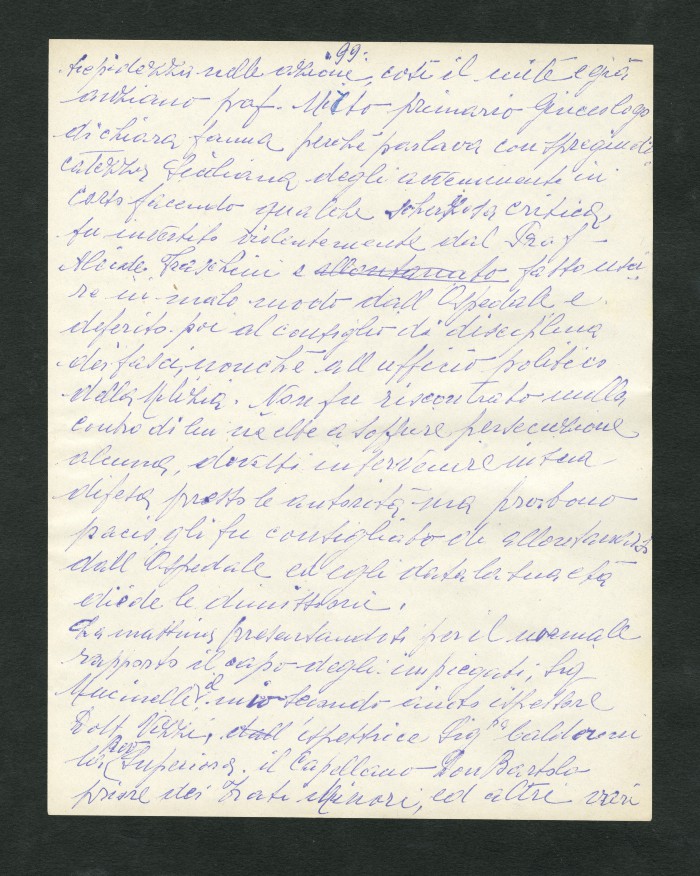 99.
trepidezza nelle azione, così il mite e già
anziano prof. Mirto primario Ginecologo
di chiara fama perché parlava con spregiudi
catezza Siciliana degli avvenimenti in
corso facendo qualche scherzosa critica,
fu investito violentemente dal Prof
Alcide Fraschini e allontanato fatto usci
re in malo modo dall Ospedale e
deferito poi al consiglio di disciplina
dei fasci, nonché all ufficio politico
della Milizia. Non fu riscontrato nulla
contro di lui né ebbe a soffrire persecuzione
alcuna, dovetti intervenire in sua
difesa presso le autorità ma pro bono
pacis, gli fu consigliato di allontanarsi
dall Ospedale ed egli data la sua età
diede le dimissioni.
La mattina presentandosi per il normale
rapporto il capo degli impiegati, Sig
Mucinelli, il mio secondo aiuto ispettore
Dott Vizzi, dall ispettrice Sig.na Caldoni
la Rev Superiora, il Capellano Don Bartolo
priore dei Frati Minori, ed altri vari